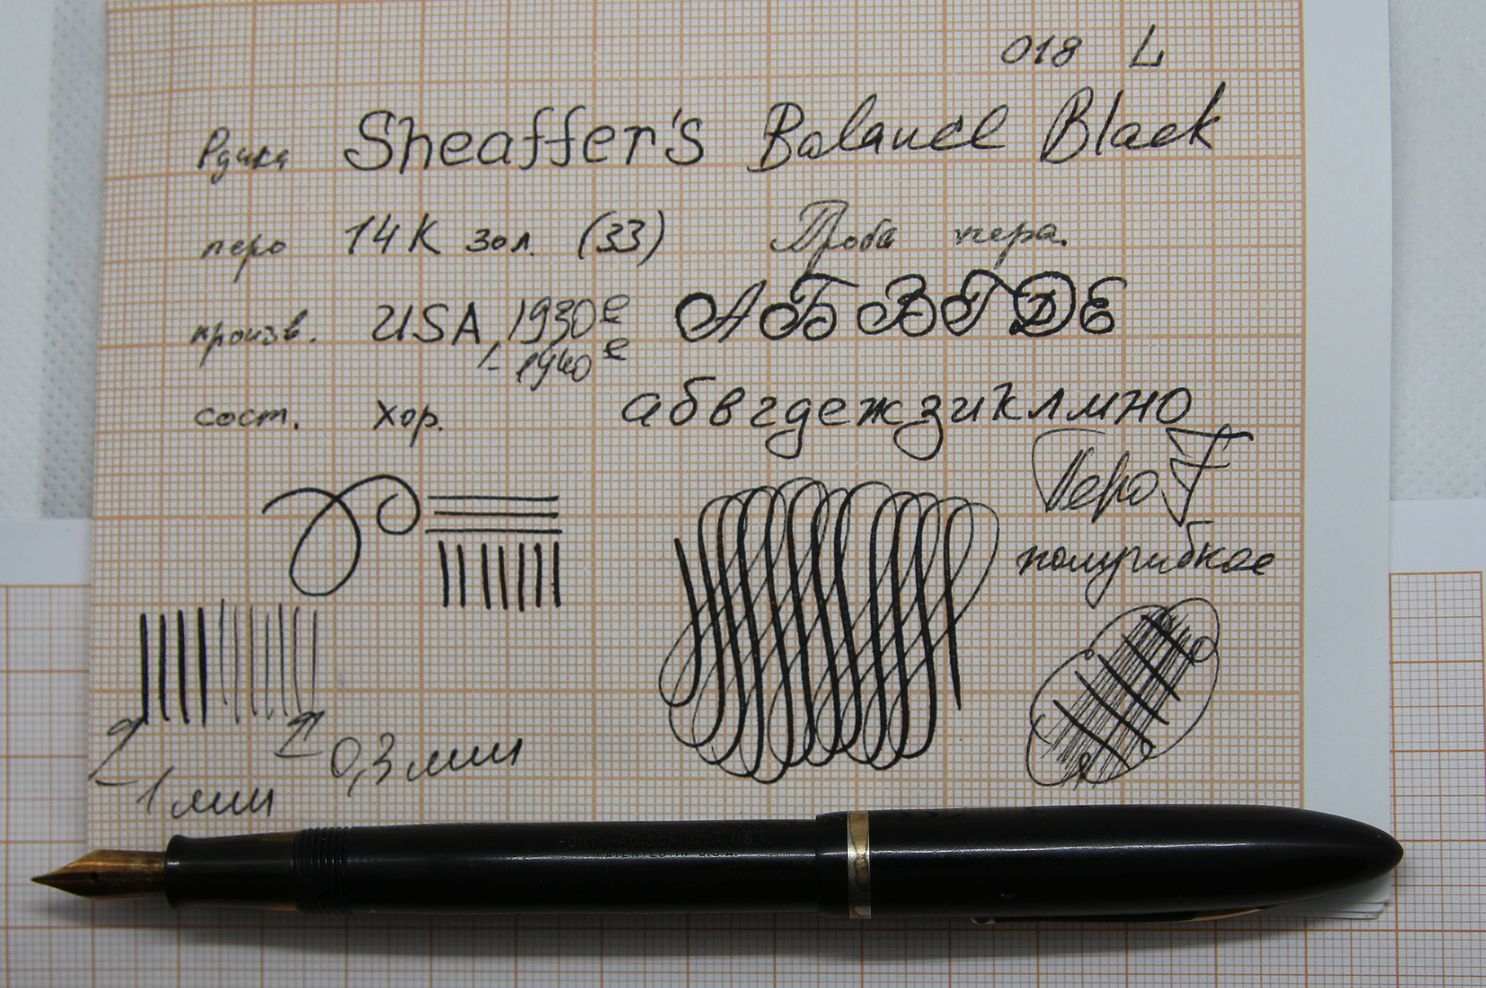 018 L
Ручка Sheaffer's Balance Black
перо 14K зол. (33) Проба пера.
произв. USA, 1930е АБВГДЕ
- 1940е
сост. хор. абвгдежзиклмно
Перо F
полугибкое
0,3 мм
1 мм